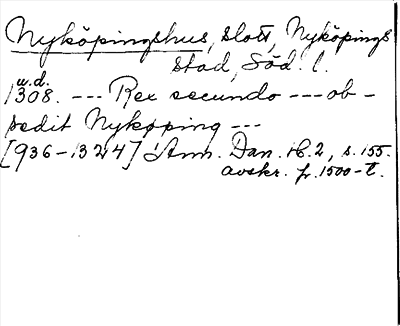 Nyköpingshus, slott, Nyköpings
stad, Söd. l.
u.d.
1308. --- Rex secundo --- ob-
sedit Nykøping ---
[936-1324] Ann. Dan. H.2, s. 155.
avskr. fr. 1500-t.